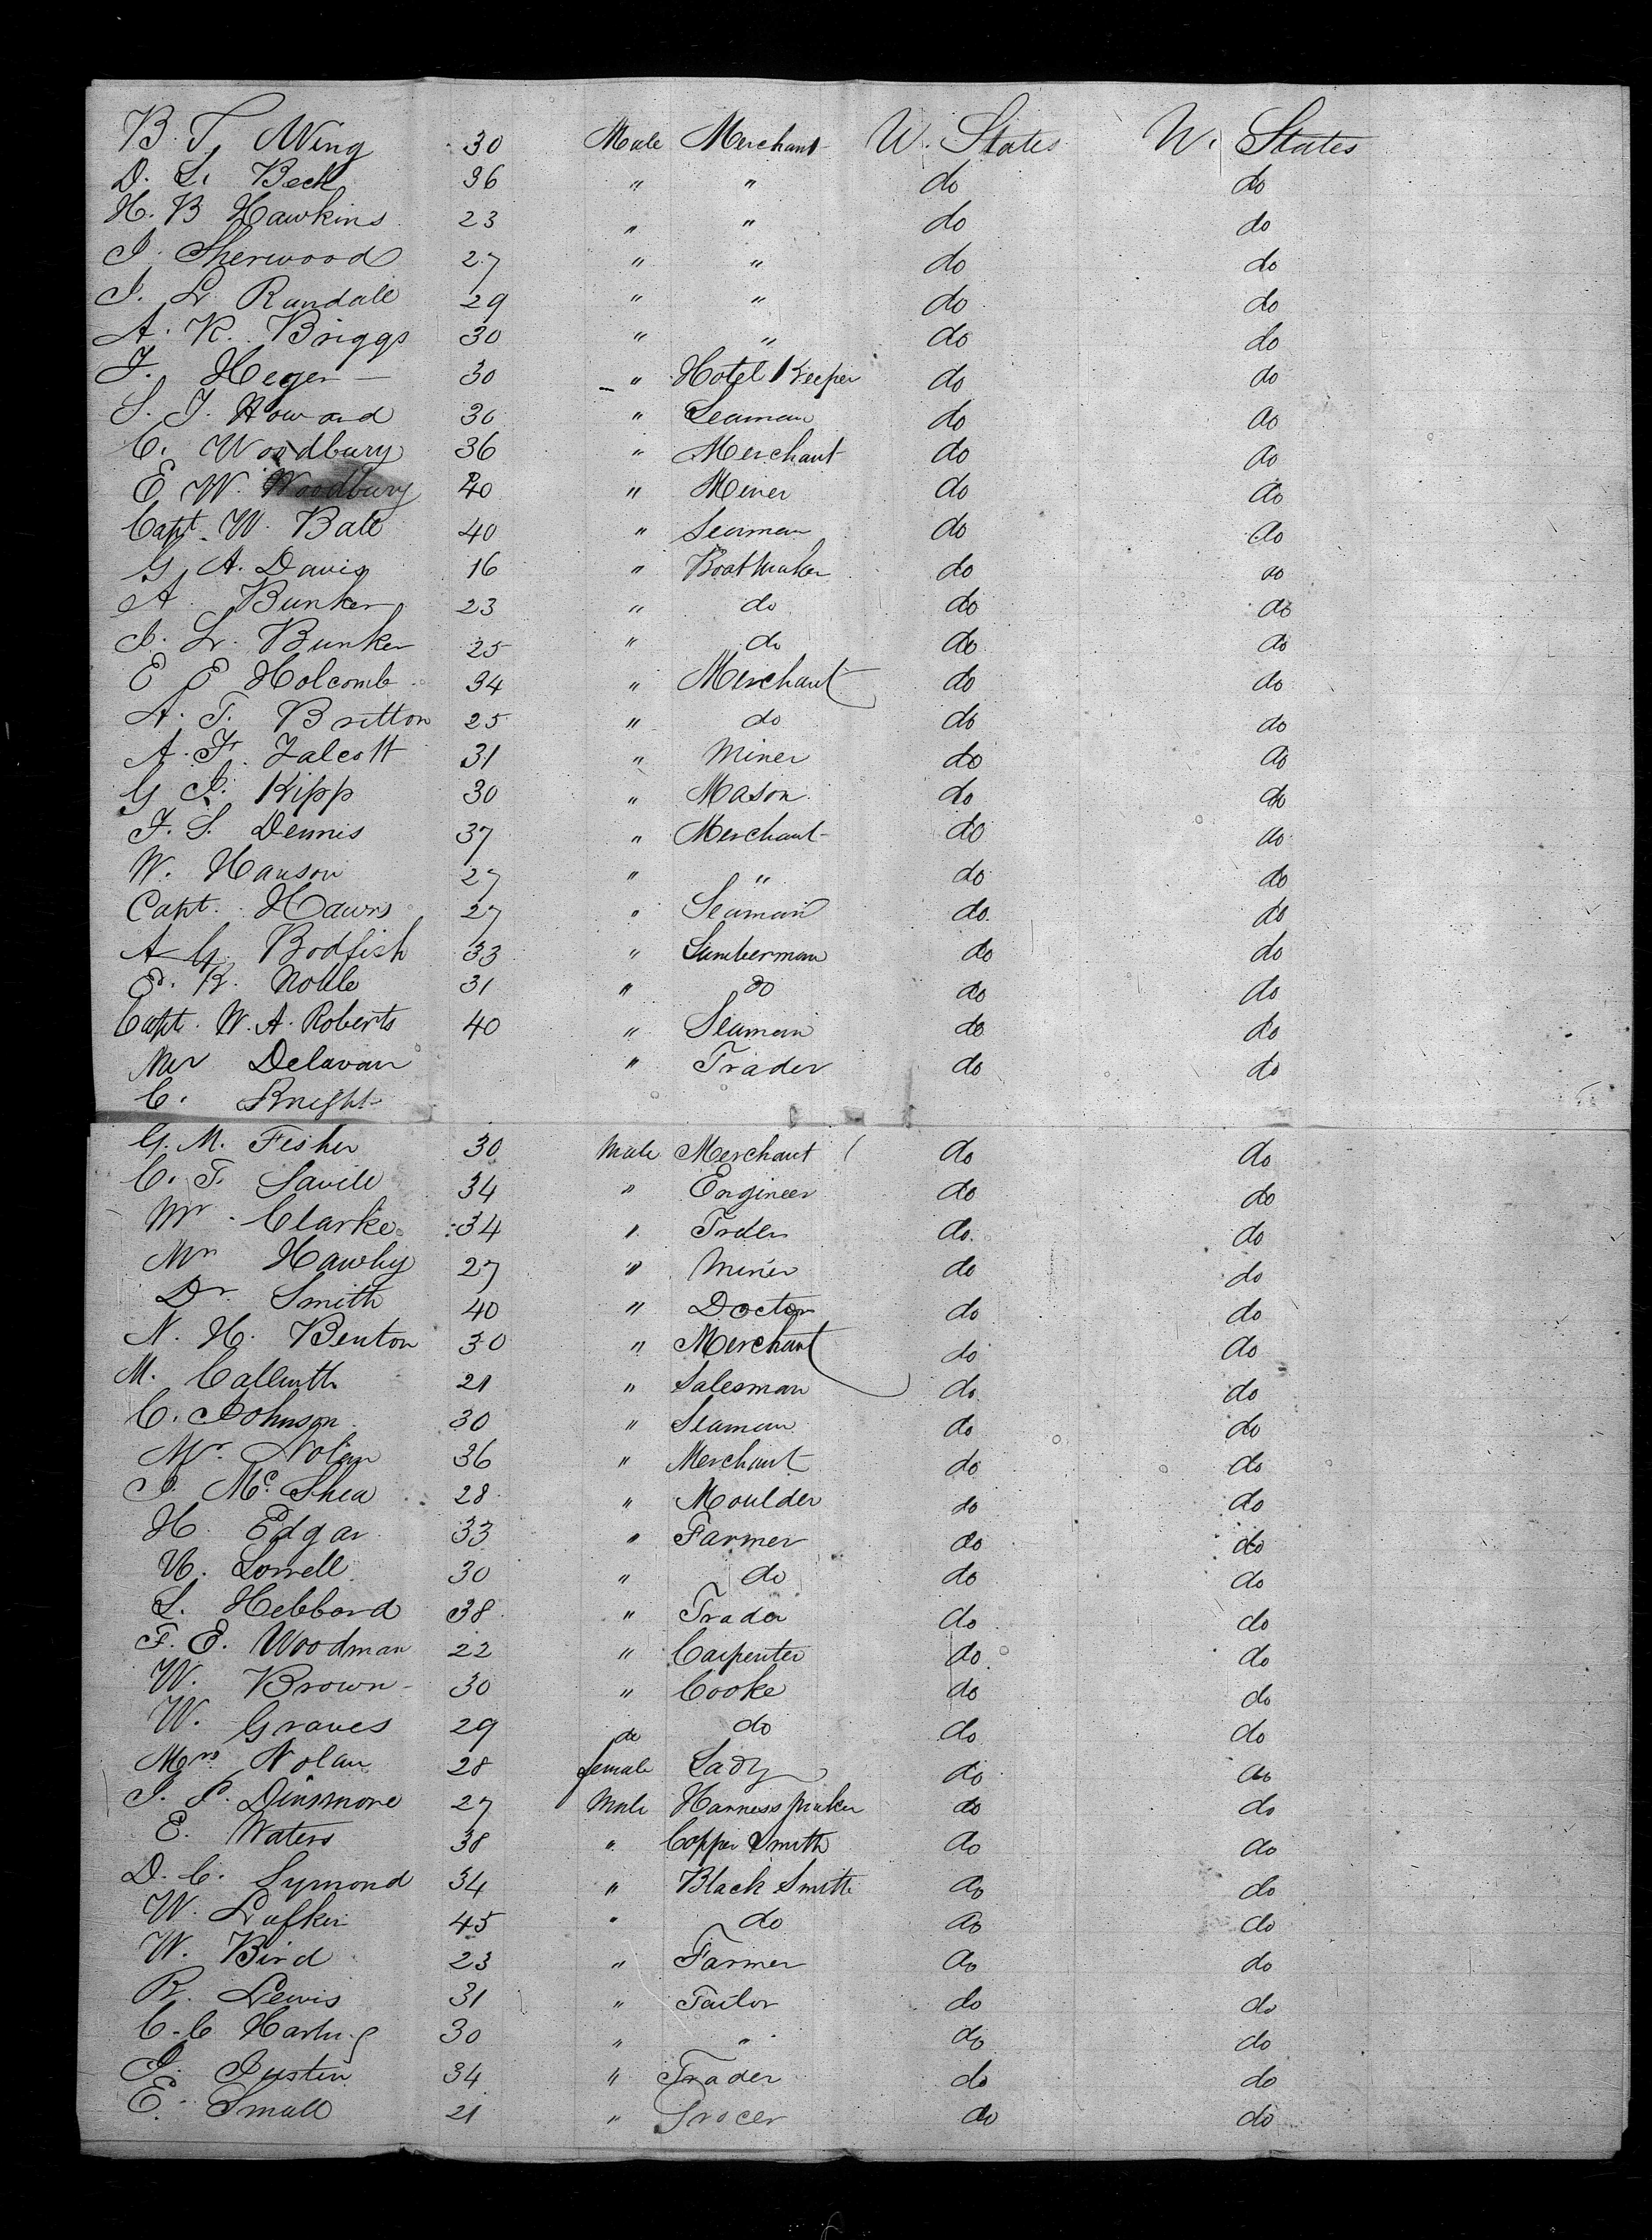 B. T. Wing 30 Male Merchant U. States U. States
D. L. Beck 36 " " do do
H. B Hawkins 23 " " do do
J. Sherwood 27 " " do do
J. L. Randall 29 " " do do
A. K. Briggs 30 " " do do
J. Heger 30 " Hotel Keeper do do
S. J. Howard 30 " Seaman do do
C. Woodbury 36 " Merchant do do
E. W. Woodbury 40 " Miner do do
Capt. W. Ball 40 " Seaman do do
G. A. Davis 16 " Boatmaker do do
A. Bunker 23 " do do do
J. L. Bunker 25 " do do do
E E Holcomb 34 " Merchant do do
A. T. Britton 25 " do do do
A. F. Talcott 31 " Miner do do
G J. Kipp 30 " Mason do do
J. S. Dennis 37 " Merchant do do
W. Hanson 27 " " do do
Capt. Hawns 27 " Seaman do do
A G. Bodfish 33 " Lumberman do do
E. K. Noble 31 " do do do
Capt. W. A. Roberts 40 " Seaman do do
Mr Delavan " Trader do do
C. Knight
G. M. Fisher 30 Male Merchant do do
C. T. Savile 34 " Engineer do do
Mr. Clarke 34 " Trder do do
Mr Hawley 27 " Miner do do
Dr. Smith 40 " Doctor do do
N. H. Benton 30 " Merchant do do
M. 21 " Salesman do do
C. Johnson 30 " Seaman do do
Mr. Nolan 36 " Merchant do do
J. Mc Shea 28 " Moulder do do
H. Edgar 33 " Farmer do do
Lorrell 30 " do do do
L. Hebbard 38 " Trader do do
F. E. Woodman 22 " Carpenter do do
W. Brown 30 " Cooke do do
W. Graves 29 do do do do
Mrs Nolan 28 female Lady do do
J. P. Dinsmore 27 Male Harness maker do do
E. Waters 38 " Copper Smith do do
D. C. Symond 34 " Black Smith do do
W. Lufkin 45 " do do do
W. Bird 23 " Farmer do do
R. Lewis 31 " Tailor do do
C. C Harting 30 " " do do
J. Justin 34 " Trader do do
E. Small 21 " Grocer do do